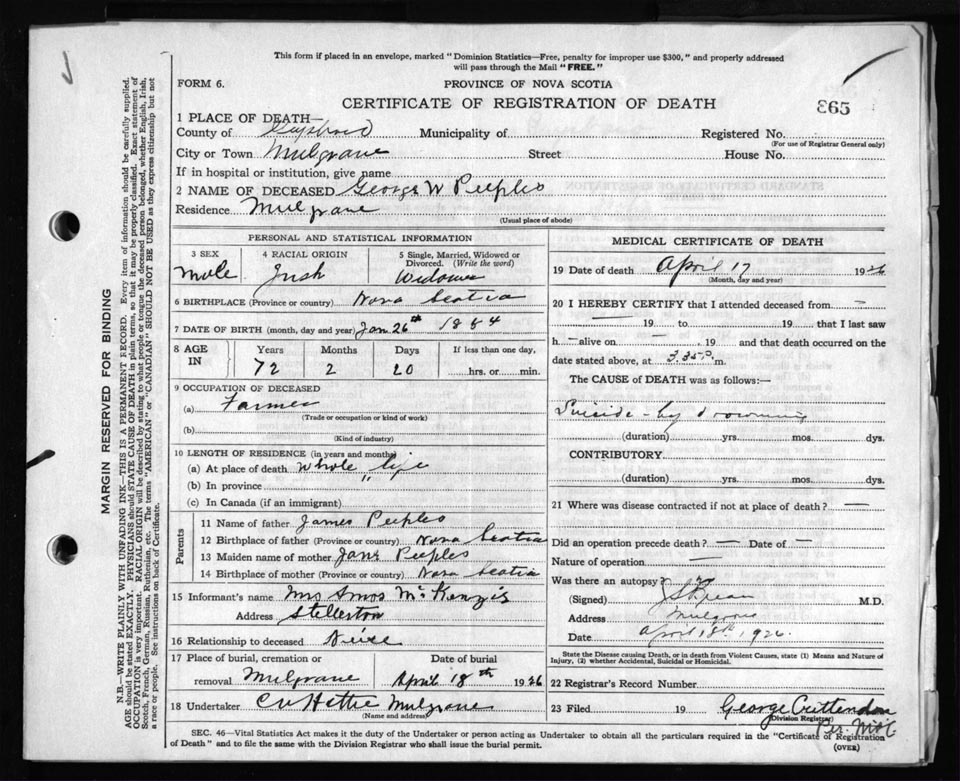 This form if placed in an envelope, marked "Dominion Statistics—Free, penalty for improper use $300," and properly addressed
will pass through the Mail "FREE."
FORM 6.
PROVINCE OF NOVA SCOTIA
CERTIFICATE OF REGISTRATION OF DEATH
865
1 PLACE OF DEATH—
County of Guysboro Municipality of Registered No.
(For use of Registrar General only)
City or Town Mulgrave Street House No.
If in hospital or institution, give name
2 NAME OF DECEASED George W Peeples
Residence Mulgrave
(Usual place of abode)
PERSONAL AND STATISTICAL INFORMATION
3 SEX 4 RACIAL ORIGIN 5 Single, Married, Widowed or Divorced. (Write the word)
Male Irish Widower
6 BIRTHPLACE (Province or country) Nova Scotia
7 DATE OF BIRTH (month, day and year) Jan 26th 1854
8 AGE IN Years Months Days If less than one day,
72 2 20 hrs. or min.
9 OCCUPATION OF DECEASED
(a) Farmer
(Trade or occupation or kind of work)
(b)
(Kind of industry)
10 LENGTH OF RESIDENCE (in years and months)
(a) At place of death Whole life
(b) In province "
(c) In Canada (if an immigrant)
Parents
11 Name of father James Peeples
12 Birthplace of father (Province or country) Nova Scotia
13 Maiden name of mother Jane Peeples
14 Birthplace of mother (Province or country) Nova Scotia
15 Informant's name Mrs Amos McKenzie
Address Stellerton
16 Relationship to deceased
17 Place of burial, cremation or Date of burial
removal Mulgrave April 18th 1926
18 Undertaker Mulgrave
(Name and address)
MEDICAL CERTIFICATE OF DEATH
19 Date of death April 17 1926
(Month, day and year)
20 I HEREBY CERTIFY that I attended deceased from —
— 19 to 19 that I last saw
h — alive on — , 19 and that death occurred on the
date stated above, at 3.35 P. m.
The CAUSE of DEATH was as follows:—
Suicide - by drowning
(duration) yrs. mos. dys.
CONTRIBUTORY
(duration) yrs. mos. dys.
21 Where was disease contracted if not at place of death? —
Did an operation precede death? — Date of —
Nature of operation —
Was there an autopsy?
(Signed) M.D.
Address Mulgrave
Date April 18th, 1926.
State the Disease causing Death, or in death from Violent Causes, state (1) Means and Nature of
Injury, (2) whether Accidental, Suicidal or Homicidal.
22 Registrar's Record Number
23 Filed 19 George Crittendon
(Division Registrar)
Per.
SEC. 46—Vital Statistics Act makes it the duty of the Undertaker or person acting as Undertaker to obtain all the particulars required in the "Certificate of Registration
of Death" and to file the same with the Division Registrar who shall issue the burial permit.
(OVER)
MARGIN RESERVED FOR BINDING
N.B.—WRITE PLAINLY WITH UNFADING INK—THIS IS A PERMANENT RECORD. Every item of information should be carefully supplied.
AGE should be stated EXACTLY. PHYSICIANS should STATE CAUSE OF DEATH in plain terms, so that it may be properly classified. Exact statement of
OCCUPATION is very important. RACIAL ORIGIN will be described by stating to what people or tongue the deceased person belonged, whether English, Irish,
Scotch, French, German, Russian, Ruthenian, etc. The terms "AMERICAN" or "CANADIAN" SHOULD NOT BE USED as they express citizenship but not
a race or people. See instructions on back of Certificate.